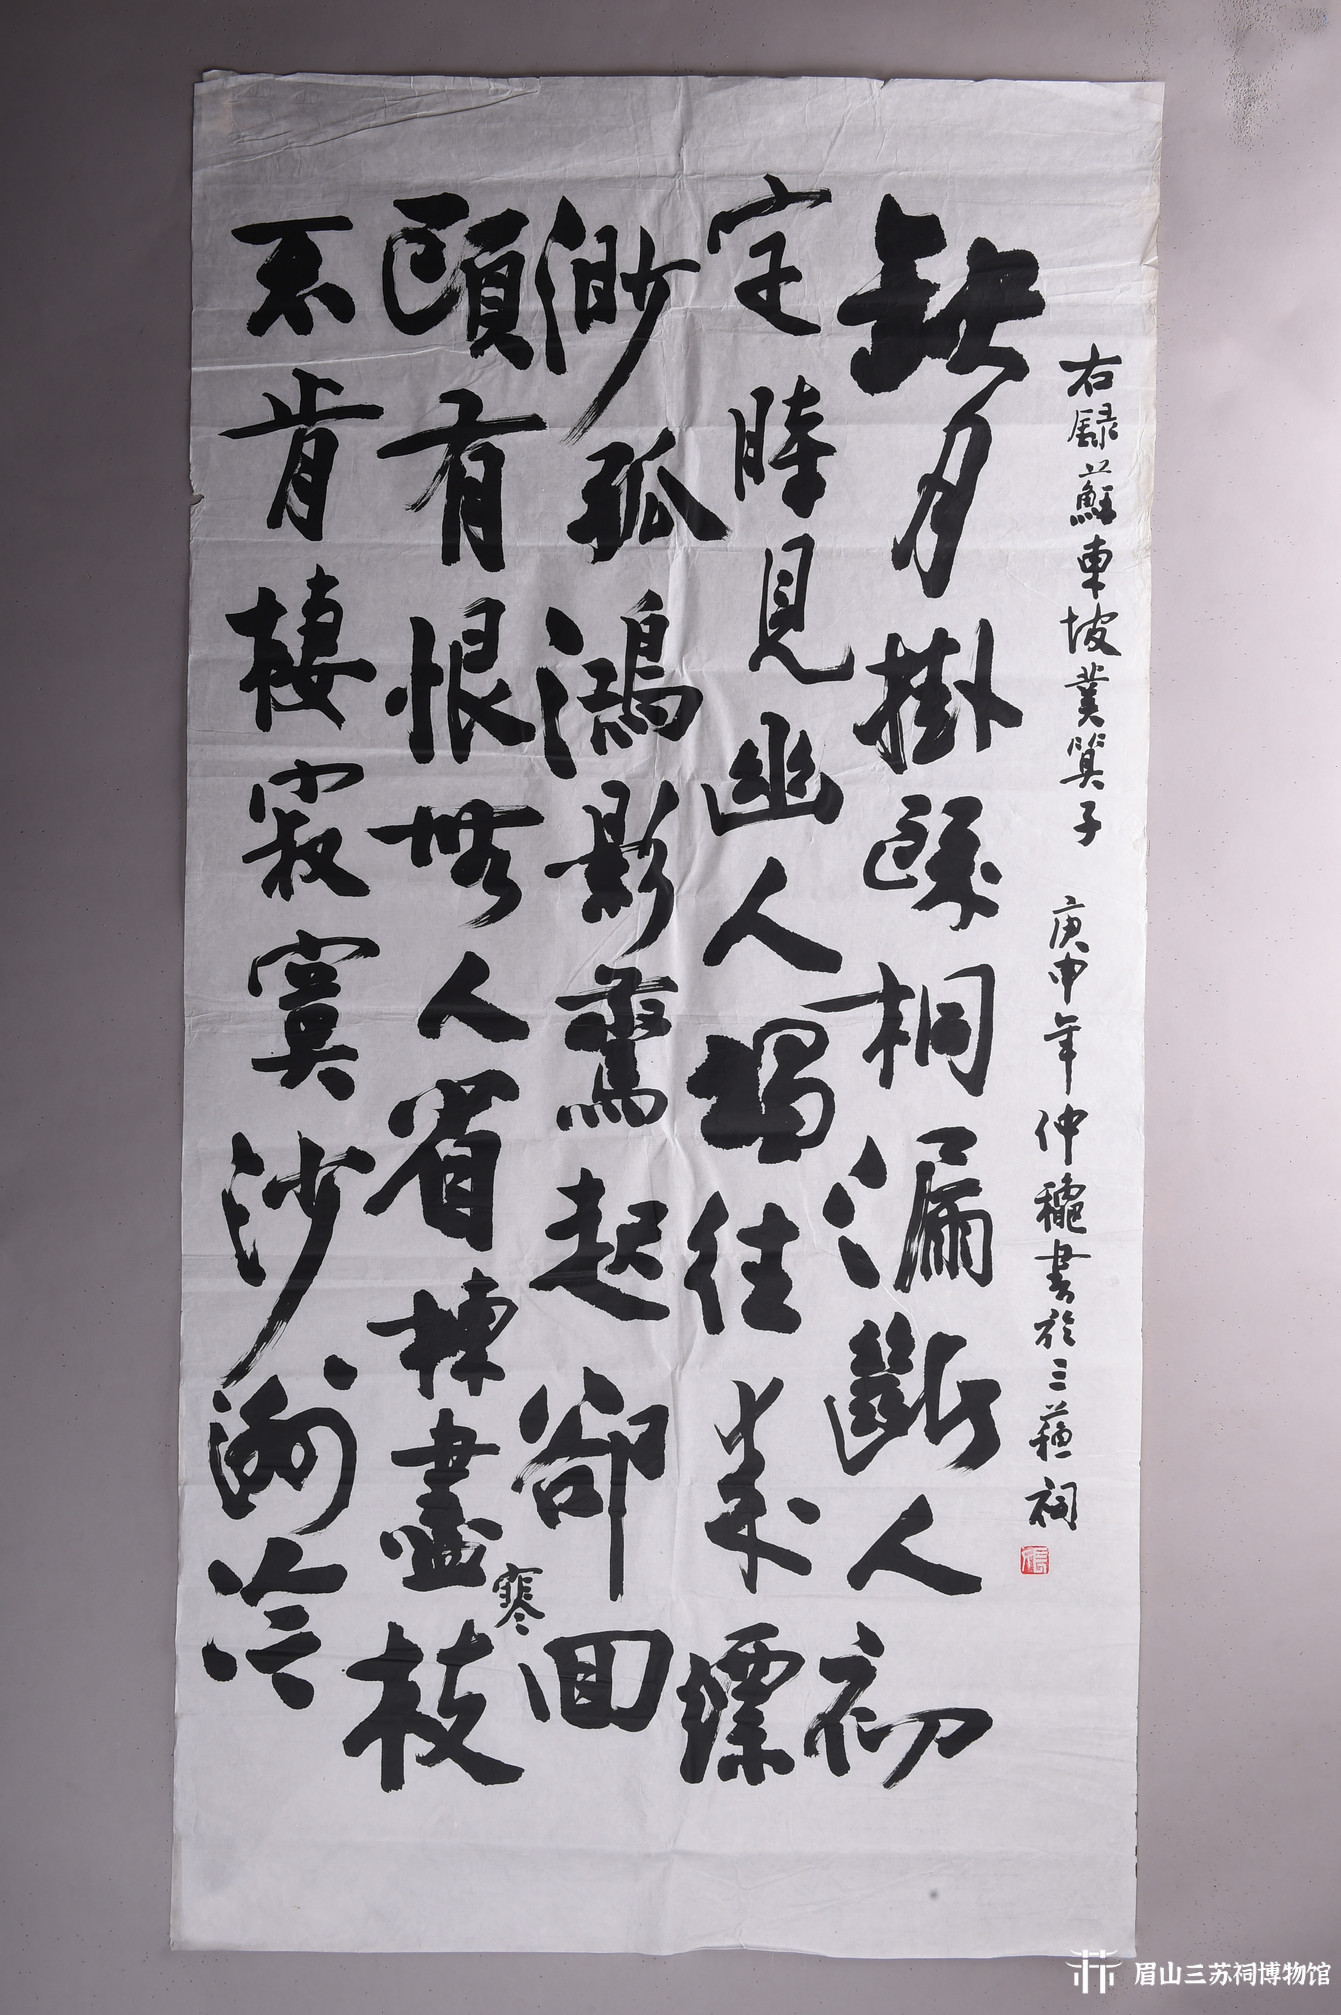 右録蘇東坡蔔算子 庚申年仲龝書於三蘇祠
缺月掛疏桐漏斷人初
定時見幽人獨往來縹
渺孤鴻影驚起卻回
頭有恨無人省揀盡寒枝
不肯棲寂寞沙洲冷
眉山三苏祠博物馆